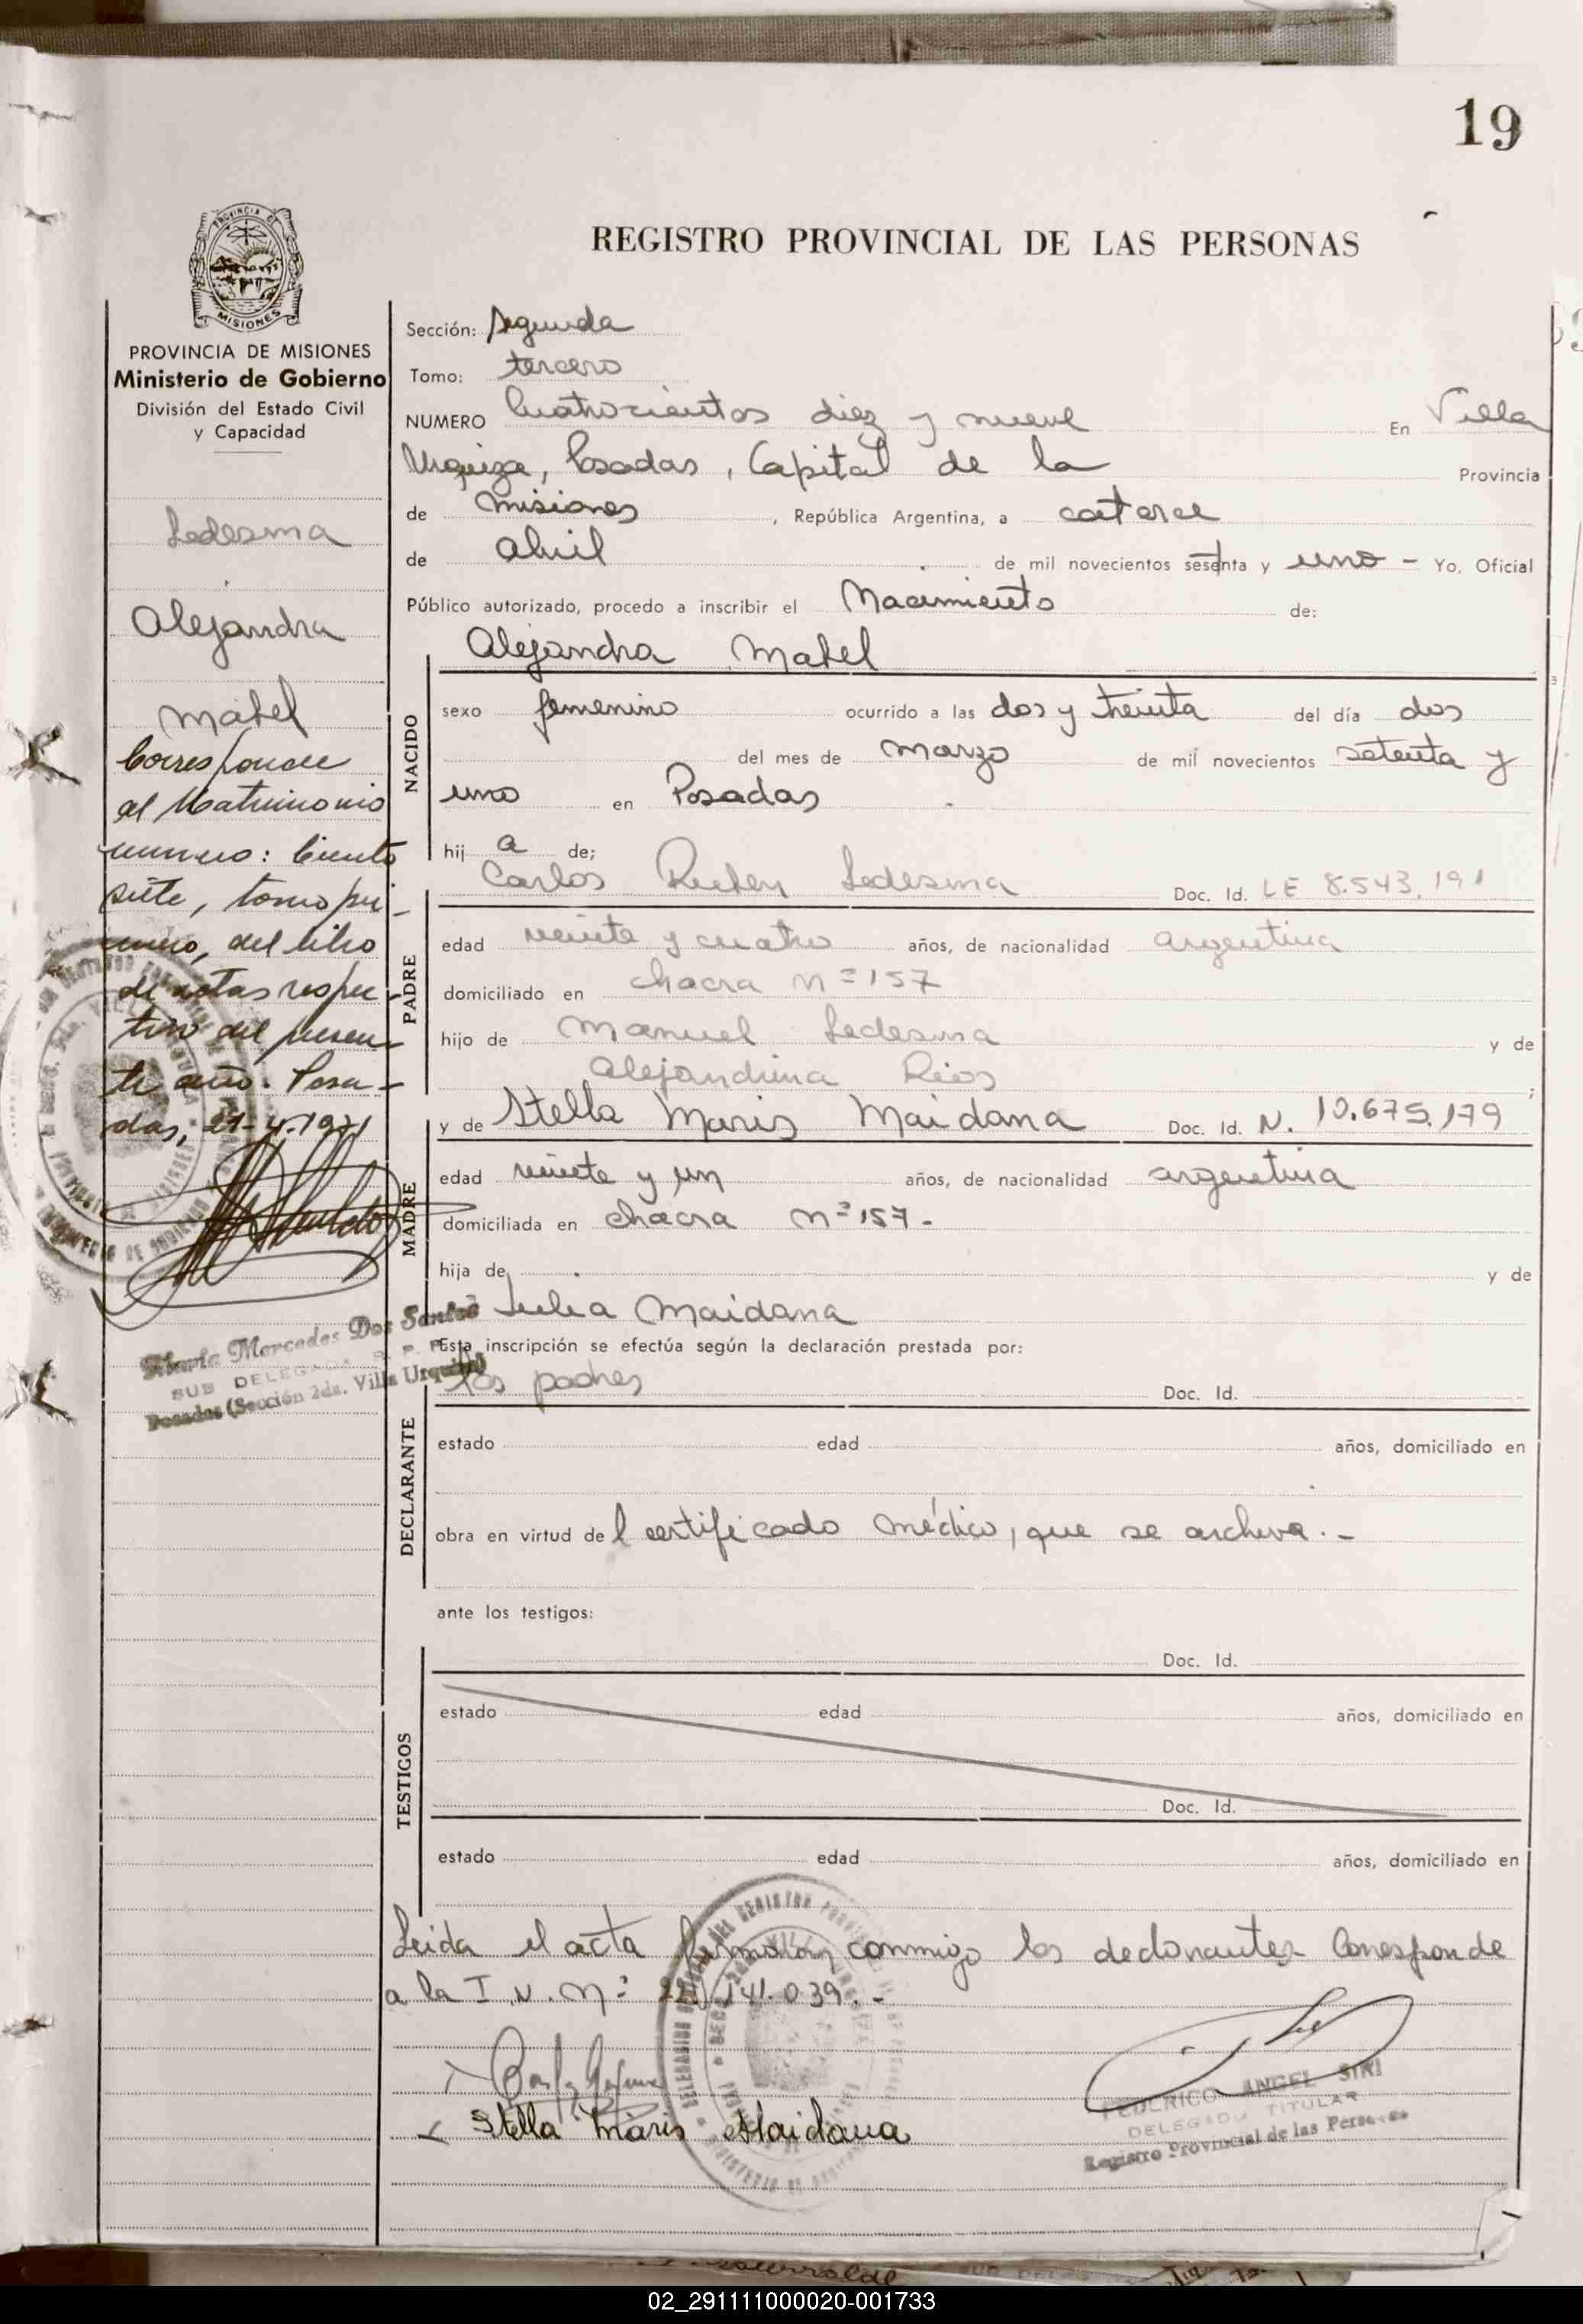 19
PROVINCIA DE
MISIONES
REGISTRO PROVINCIAL DE LAS PERSONAS
PROVINCIA DE MISIONES
Ministerio de Gobierno
División del Estado Civil
y Capacidad
Ledesma
Alejandra
Mabel
Corresponde
al Matrimonio
número: Ciento
siete, tomo pri-
mero, del libro
de notas respec-
tivo del presen-
te año. Posa-
das, 21-4-1971
María Mercedes Dos Santos
SUB DELEGADA R. P. P.
Posadas (Sección 2da. Villa Urquiza)
Sección: Segunda
Tomo: tercero
NUMERO Cuatrocientos diez y nueve En Villa
Urquiza, Posadas, Capital de la Provincia
de Misiones, República Argentina, a catorce
de abril de mil novecientos setenta y uno - Yo, Oficial
Público autorizado, procedo a inscribir el Nacimiento de:
Alejandra Mabel
NACIDO
sexo femenino ocurrido a las dos y treinta del día dos
del mes de marzo de mil novecientos setenta y
uno en Posadas
hij a de;
Carlos Ruben Ledesma Doc. Id. LE 8.543.191
PADRE
edad veinte y cuatro años, de nacionalidad argentina
domiciliado en chacra nº 157
hijo de Manuel Ledesma y de
Alejandrina Rios ;
y de Stella Maris Maidana Doc. Id. N. 10.675.179
MADRE
edad veinte y un años, de nacionalidad argentina
domiciliada en chacra nº 157.
hija de y de
Julia Maidana
Esta inscripción se efectúa según la declaración prestada por:
los padres Doc. Id.
DECLARANTE
estado edad años, domiciliado en
obra en virtud del certificado médico, que se archiva.-
ante los testigos:
Doc. Id.
TESTIGOS
estado edad años, domiciliado en
Doc. Id.
estado edad años, domiciliado en
Leida el acta firmaron conmigo los declarantes Corresponde
a la I.N. Nº 141.039.-
Stella Maris Maidana
FEDERICO ANGEL SIRI
DELEGADO TITULAR
Registro Provincial de las Personas
02_291111000020-001733